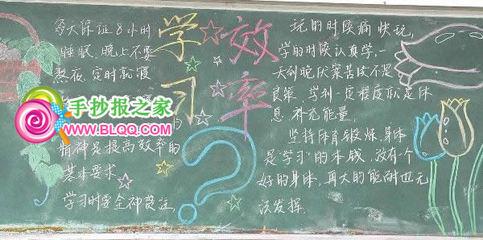 每天保证8小时
睡眠,晚上不要
熬夜,定时就寝
精神是提高效率的
基本要求
学习时要全神贯注
学习效率
?
玩的时候痛快玩,
学的时候认真学,一
天到晚伏案苦读不是
良策,学到一定程度就是休
息,补充能量。
坚持体育锻炼,身体
是"学习"的本钱,没有个
好的身体,再大的能耐也无
法发挥
手抄报之家
WWW.BLQQ.COM